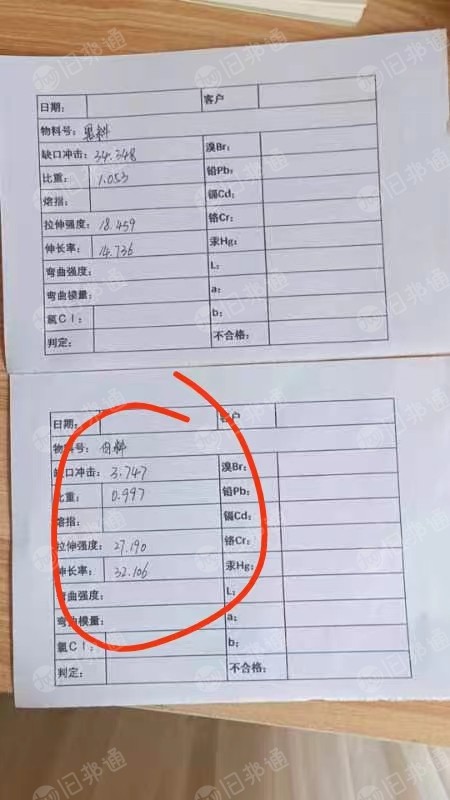 日期： 客户
物料号：黑料
缺口冲击：34.348 溴Br：
比重： 1.053 铅Pb：
熔指： 镉Cd：
拉伸强度：18.459 铬Cr：
伸长率： 14.736 汞Hg：
弯曲强度： L：
弯曲模量： a：
氯Cl： b：
判定： 不合格：
日期： 客户
物料号：白料
缺口冲击：3.747 溴Br：
比重： 0.997 铅Pb：
熔指： 镉Cd：
拉伸强度：27.190 铬Cr：
伸长率： 32.106 汞Hg：
弯曲强度： L：
弯曲模量： a：
氯Cl： b：
判定： 不合格：
旧邦通